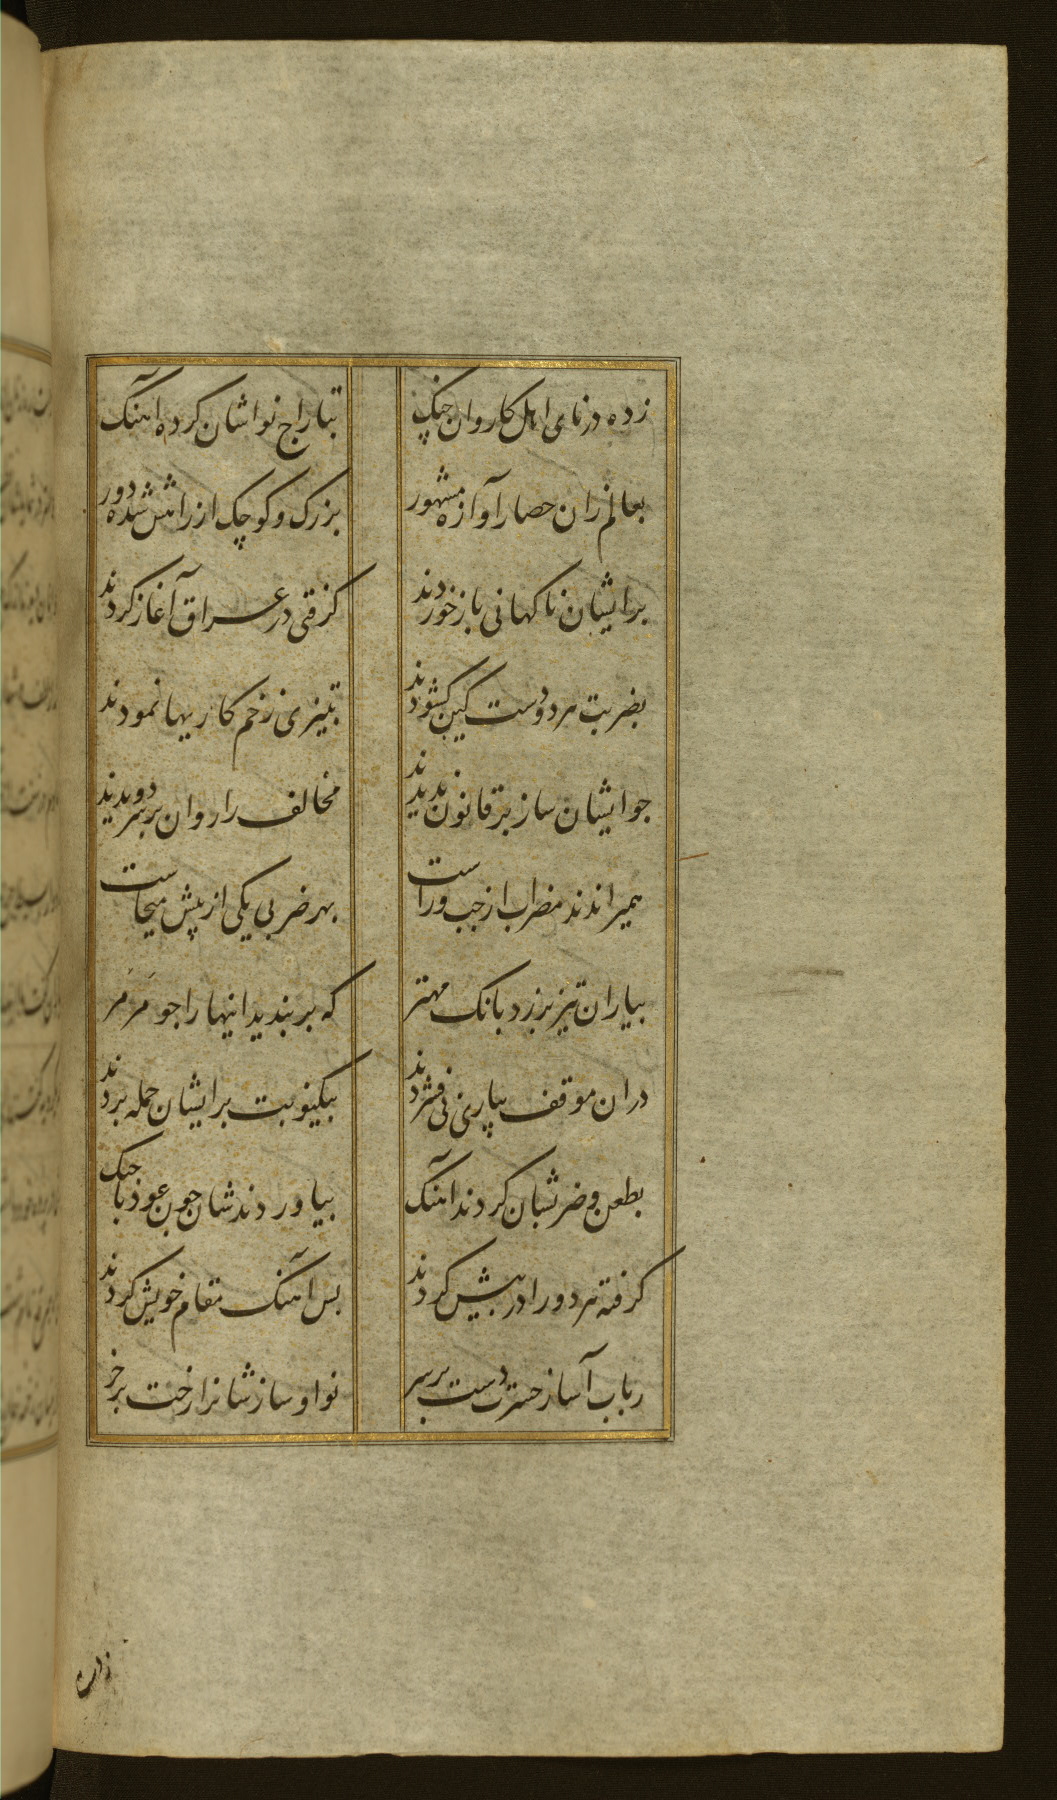 زده در نای اهل کاروان چنک تباراج نواشان کرده اهنک
بعالم زان حصار آوازه مشهور بزرک و کوچک از راهش شده دور
برایشان ناکهانی باز خوردند کرفتی در عراق آغاز کردند
بضربت هر دو دست کین کشودند بتیزی زخم کاریها نمودند
جو ایشان ساز بر قانون ندیدند مخالف را روان بر سر دویدند
همیراندند مضراب از جب و راست بهر ضربی یکی از پیش میخاست
بیاران تیز برزد بانک مهتر که بربندید اینها را جو مرمر
دران موقف بیاری نی فشردند بیکنوبت برایشان حمله بردند
بطعن و ضربشان کردند اهنک بیاوردندشان جون عود با جنک
کرفته هر دو را در پیش کردند بس اهنک مقام خویش کردند
رباب آسا ز حسرت دست بر سر نوا و سازشانرا رخت بر خر